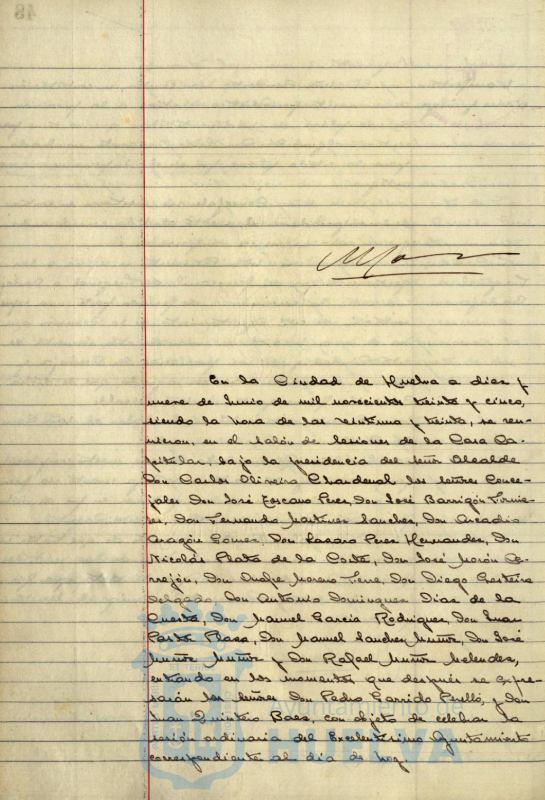 En la Ciudad de Huelva a diez y
nueve de Junio de mil novecientos treinta y cinco,
siendo la hora de las veintiuna y treinta, se reu-
nieron, en el salón de sesiones de la Casa Ca-
pitular, bajo la presidencia del Señor Alcalde
Don Carlos Oliveira Chardenal los Señores Conce-
jales Don José Toscano Perez, Don José Barrigón Fornie-
les, Don Fernando Martinez Sanchez, Don Arcadio
Aragón Gómez, Don Lazaro Perez Hernandez, Don
Nicolás Plata de la Corte, Don José Morón Ce-
rrejón, Don Moreno Don Diego
Delgado, Don Antonio Dominguez Diaz de la
Cuesta, Don Manuel Garcia Rodriguez, Don Juan
Plaza, Don Manuel Sanchez Muñoz, Don José
Muñoz Muñoz y Don Rafael Muñoz Melendez,
entrando en los momentos que después se expre-
sarán los Señores Don Pedro Garrido Perelló, y Don
Juan Quintero Baez, con objeto de celebrar la
sesión ordinaria del Excelentísimo Ayuntamiento
correspondiente al dia de hoy.
Ayuntamiento de
HUELVA